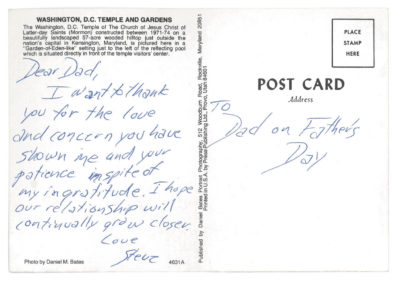 WASHINGTON, D.C. TEMPLE AND GARDENS
The Washington, D.C. Temple of The Church of Jesus Christ of
Latter-day Saints (Mormon) constructed between 1971-74 on a
beautifully landscaped 57-acre wooded hilltop just outside the
nation's capital in Kensington, Maryland, is pictured here in a
"Garden-of-Eden-like" setting just to the left of the reflecting pool
which is situated directly in front of the temple visitors' center.
Dear Dad,
I want to thank
you for the love
and concern you have
shown me and your
patience in spite of
my ingratitude. I hope
our relationship will
continually grow closer.
Love
Steve
Photo by Daniel M. Bates
4631A
Published by Daniel Bates Portrait Photography, 512 Woodburn Road, Rockville, Maryland 20851
Printed in U.S.A. by Press Publishing Ltd., Provo, Utah 84601
PLACE
STAMP
HERE
POST CARD
Address
TO
Dad on Father's
Day